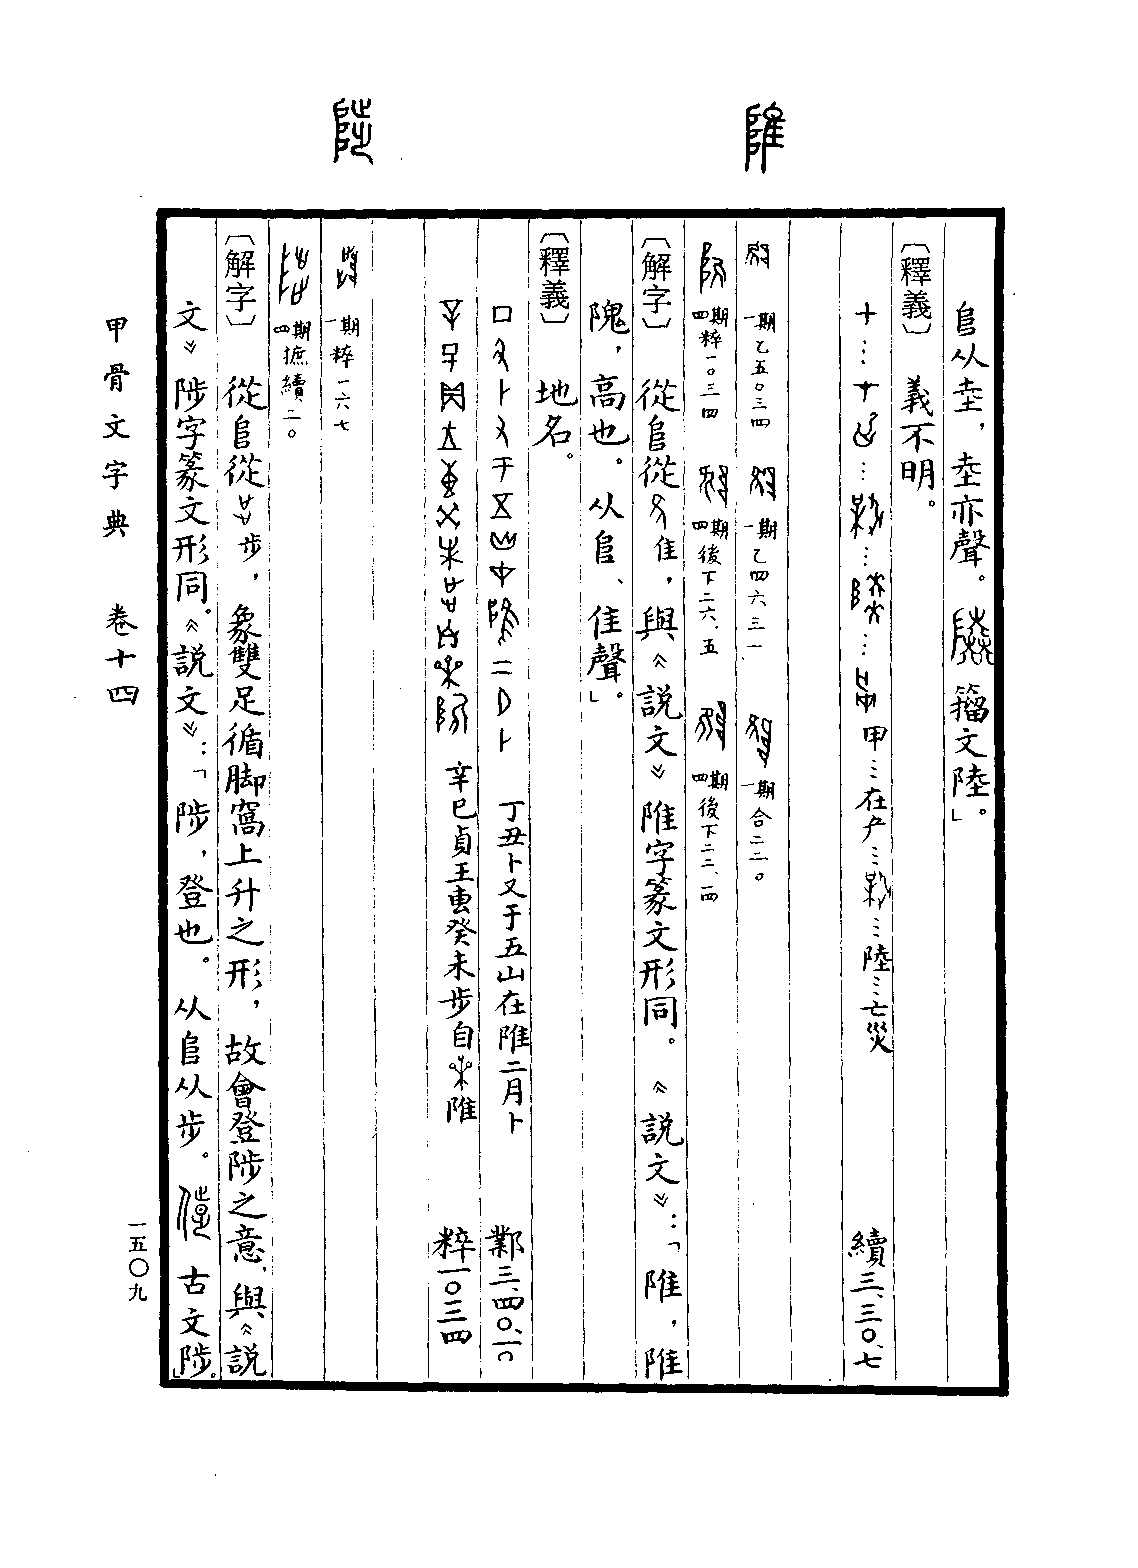 𨸏从坴，坴亦聲。籀文陸」。
〔釋義〕義不明。
甲…在…陸…亡災 續三、三〇、七
一期乙五〇三四 一期乙四六三一 一期合二二〇
四期粹一〇三四 四期後下二六、五 四期後下二二、一四
〔解字〕從𨸏從隹，與《説文》陮字篆文形同。《説文》：「陮，陮
隗，高也。从𨸏、隹聲」。
〔釋義〕地名。
丁丑卜又于五山在陮二月卜 鄴三、四〇、一〇
辛巳貞王叀癸未步自陮 粹一〇三四
一期粹一六七
四期摭續二〇
〔解字〕從𨸏從步，象雙足循脚窩上升之形，故會登陟之意，與《説
文》陟字篆文形同。《説文》：「陟，登也。从𨸏从步。古文陟」。
甲骨文字典 卷十四
一五〇九